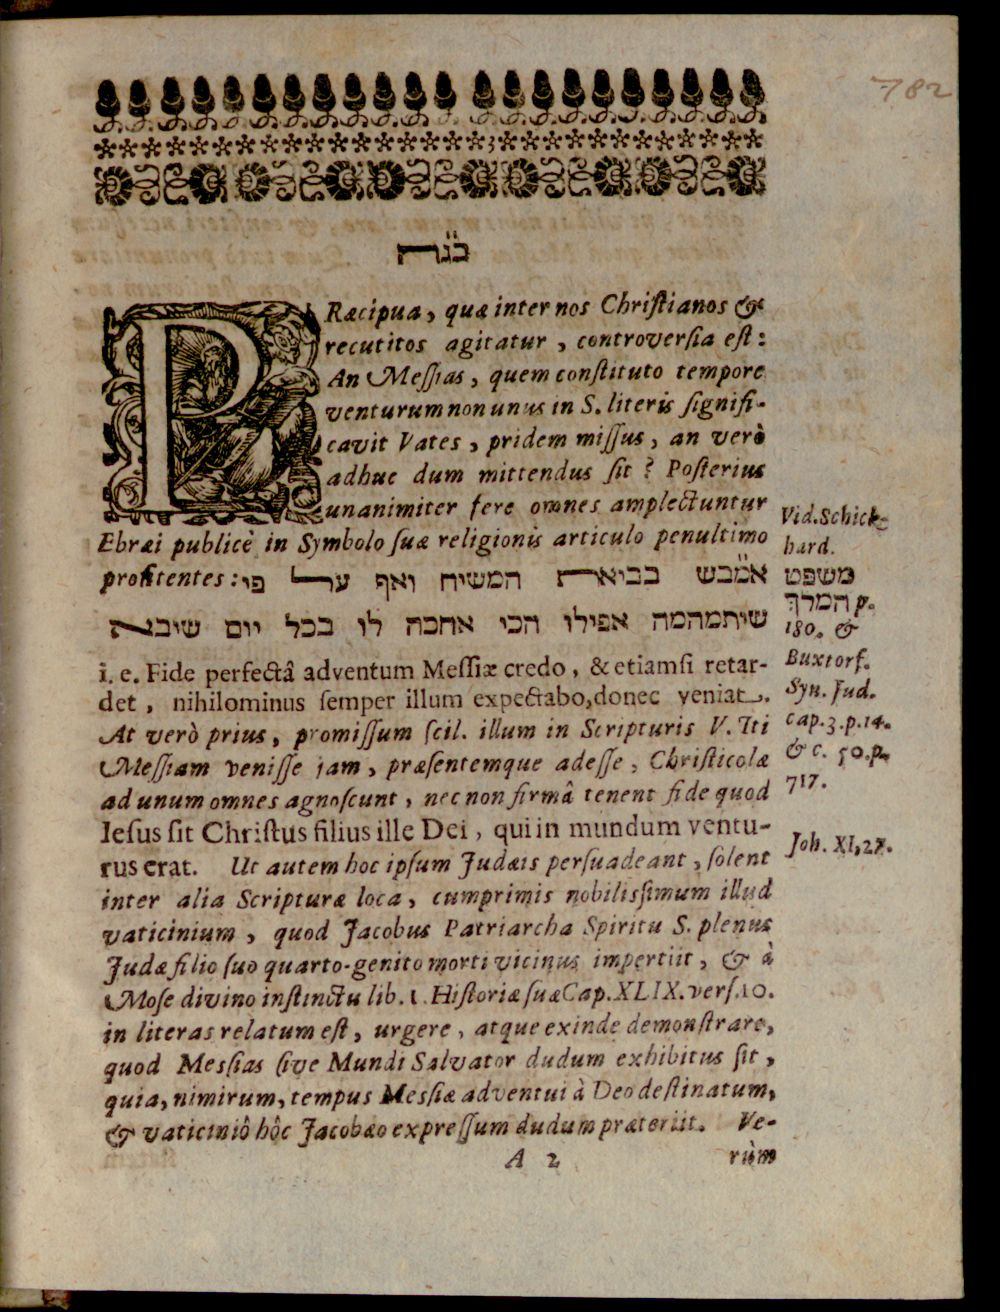 782
בגה
PRæcipua, quæ inter nos Christianos &
recutitos agitatur, controversia est:
An Messias, quem constituto tempore
venturum non unus in S. literis signifi-
cavit Vates, pridem missus, an verò
adhuc dum mittendus sit? Posterius
unanimiter fere omnes amplectuntur
Ebræi publicè in Symbolo suæ religionis articulo penultimo
profitentes: אמבש בביאת המשיח ואף על פי
שיתמהמה אפילו הכי אחכה לו בכל יום שיבא
i. e. Fide perfectâ adventum Messiæ credo, & etiamsi retar-
det, nihilominus semper illum expectabo, donec veniat.
At verò prius, promissum scil. illum in Scripturis V. Tti
Messiam venisse jam, præsentemque adesse, Christicolæ
ad unum omnes agnoscunt, nec non firmâ tenent fide quod
Iesus sit Christus filius ille Dei, qui in mundum ventu-
rus erat. Ut autem hoc ipsum Judæis persuadeant, solent
inter alia Scripturæ loca, cumprimis nobilissimum illud
vaticinium, quod Jacobus Patriarcha Spiritu S. plenus
Judæ filio suo quarto-genito morti vicinus impertiit, & à
Mose divino instinctu lib. 1. Historiæ suæ Cap. XLIX. vers. 10.
in literas relatum est, urgere, atque exinde demonstrare,
quod Messias sive Mundi Salvator dudum exhibitus sit,
quia, nimirum, tempus Messiæ adventui à Deo destinatum,
& vaticiniô hôc Jacobæo expressum dudum præteriit. Ve-
A 2 rùm
Vid. Schick-
hard.
משפט
המלך p.
180. &
Buxtorf.
Syn. Jud.
cap. 3. p. 14.
& c. 50. p.
717.
Joh. XI, 27.